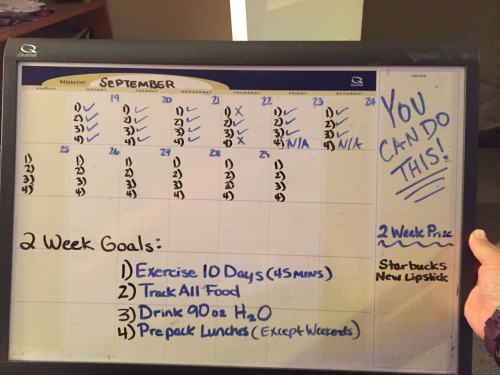 Quartet
MONTH: SEPTEMBER
Quartet
NOTES
SUNDAY MONDAY TUESDAY WEDNESDAY THURSDAY FRIDAY SATURDAY
19 20 21 22 23 24
1) ✓ 1) ✓ 1) ✓ 1) X 1) ✓ 1) ✓
2) ✓ 2) ✓ 2) ✓ 2) ✓ 2) ✓ 2) ✓
3) ✓ 3) ✓ 3) ✓ 3) ✓ 3) ✓ 3) ✓
4) ✓ 4) ✓ 4) ✓ 4) X 4) N/A 4) N/A
25 26 27 28 29
1) 1) 1) 1) 1) 1)
2) 2) 2) 2) 2) 2)
3) 3) 3) 3) 3) 3)
4) 4) 4) 4) 4) 4)
2 Week Goals:
1) Exercise 10 Days (45 MINS)
2) Track All Food
3) Drink 90oz H2O
4) Prepack Lunches (Except Weekends)
YOU
CAN DO
THIS!
2 Week Prize
Starbucks
New Lipstick